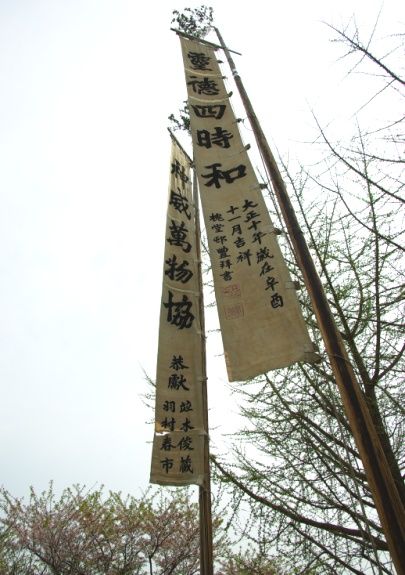 靈德四時和
大正十年歳在辛酉
十一月吉祥
桃堂邨豐拜書
神威萬物協
恭獻
竝木俊藏
羽村春市